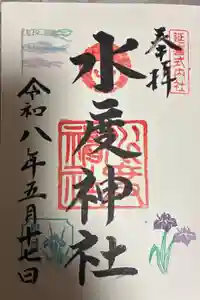 奉拝
延喜式内社
水度神社
令和八年五月廿七日